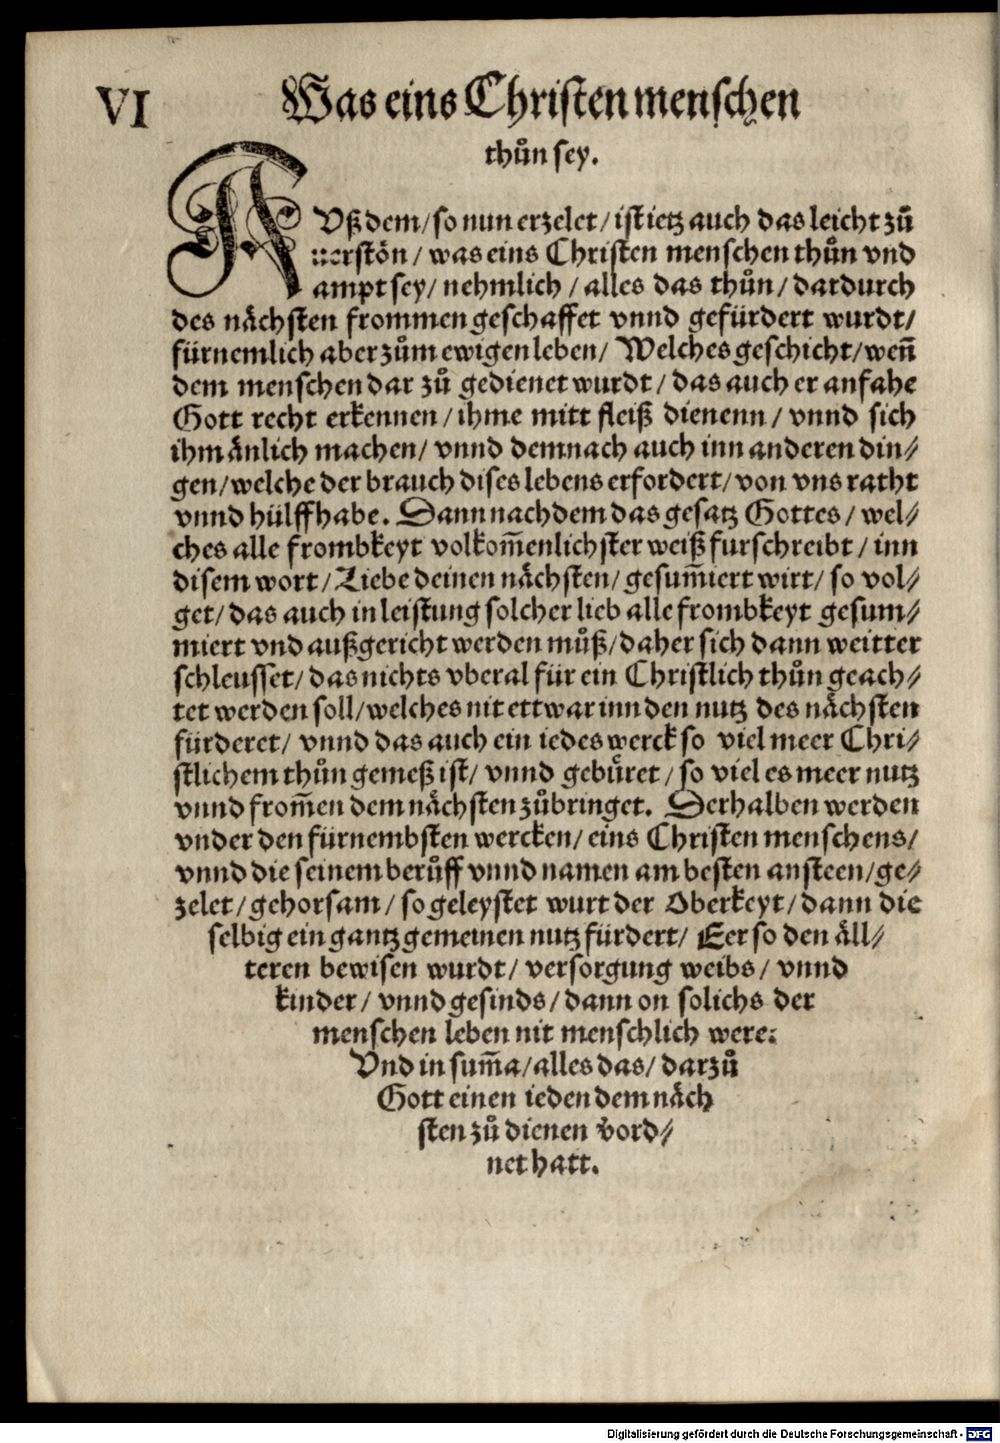 VI
Was eins Christen menschen
thůn sey.
AVß dem/ so nun erzelet/ ist ietz auch das leicht zů
verstön/ was eins Christen menschen thůn vnd
ampt sey/ nehmlich/ alles das thůn/ dardurch
des nächsten frommen geschaffet vnnd gefürdert wurdt/
fürnemlich aber zům ewigen leben/ Welches geschicht/ weñ
dem menschen dar zů gedienet wurdt/ das auch er anfahe
Gott recht erkennen/ ihme mitt fleiß dienenn/ vnnd sich
ihm änlich machen/ vnnd demnach auch inn anderen din⸗
gen/ welche der brauch dises lebens erfordert/ von vns rath t
vnnd hülff habe. Dann nach dem das gesatz Gottes/ wel⸗
ches alle frombkeyt volkom̃enlichster weiß furschreibt/ inn
disem wort/ Liebe deinen nächsten/ gesum̃iert wirt/ so vol⸗
get/ das auch in leistung solcher lieb alle frombkeyt gesum⸗
miert vnd außgericht werden můß/ daher sich dann weitter
schleusset/ das nichts vberal für ein Christlich thůn geach⸗
tet werden soll/ welches nit ettwar inn den nutz des nächsten
fürderet/ vnnd das auch ein iedes werck so viel meer Chri⸗
stlichem thůn gemeß ist/ vnnd gebüret/ so viel es meer nutz
vnnd from̃en dem nächsten zůbringet. Derhalben werden
vnder den fürnembsten wercken/ eins Christen menschens/
vnnd die seinem berůff vnnd namen am besten ansteen/ ge⸗
zelet/ gehorsam/ so geleystet wurt der Oberkeyt/ dann die
selbig ein gantz gemeinen nutz fürdert/ Eer so den äll⸗
teren bewisen wurdt/ versorgung weibs/ vnnd
kinder/ vnnd gesinds/ dann on solichs der
menschen leben nit menschlich were:
Vnd in sum̃a/ alles das/ darzů
Gott einen ieden dem näch
sten zů dienen v̈ord⸗
net hatt.
Digitalisierung gefördert durch die Deutsche Forschungsgemeinschaft - DFG